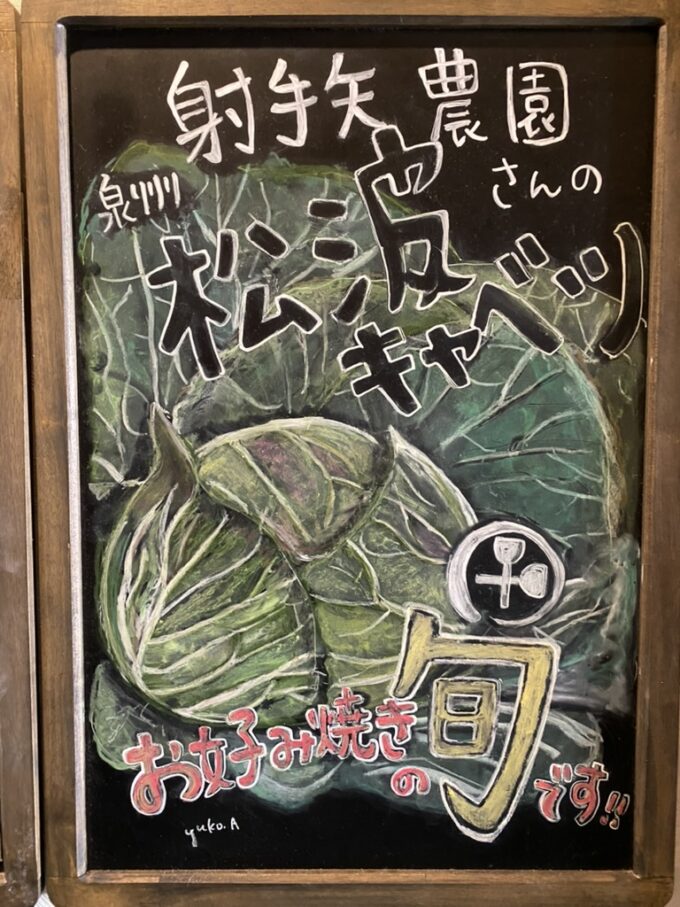 射手矢農園
さんの
泉州
松波
キャベツ
お好み焼き
の旬です!!
yuko.A